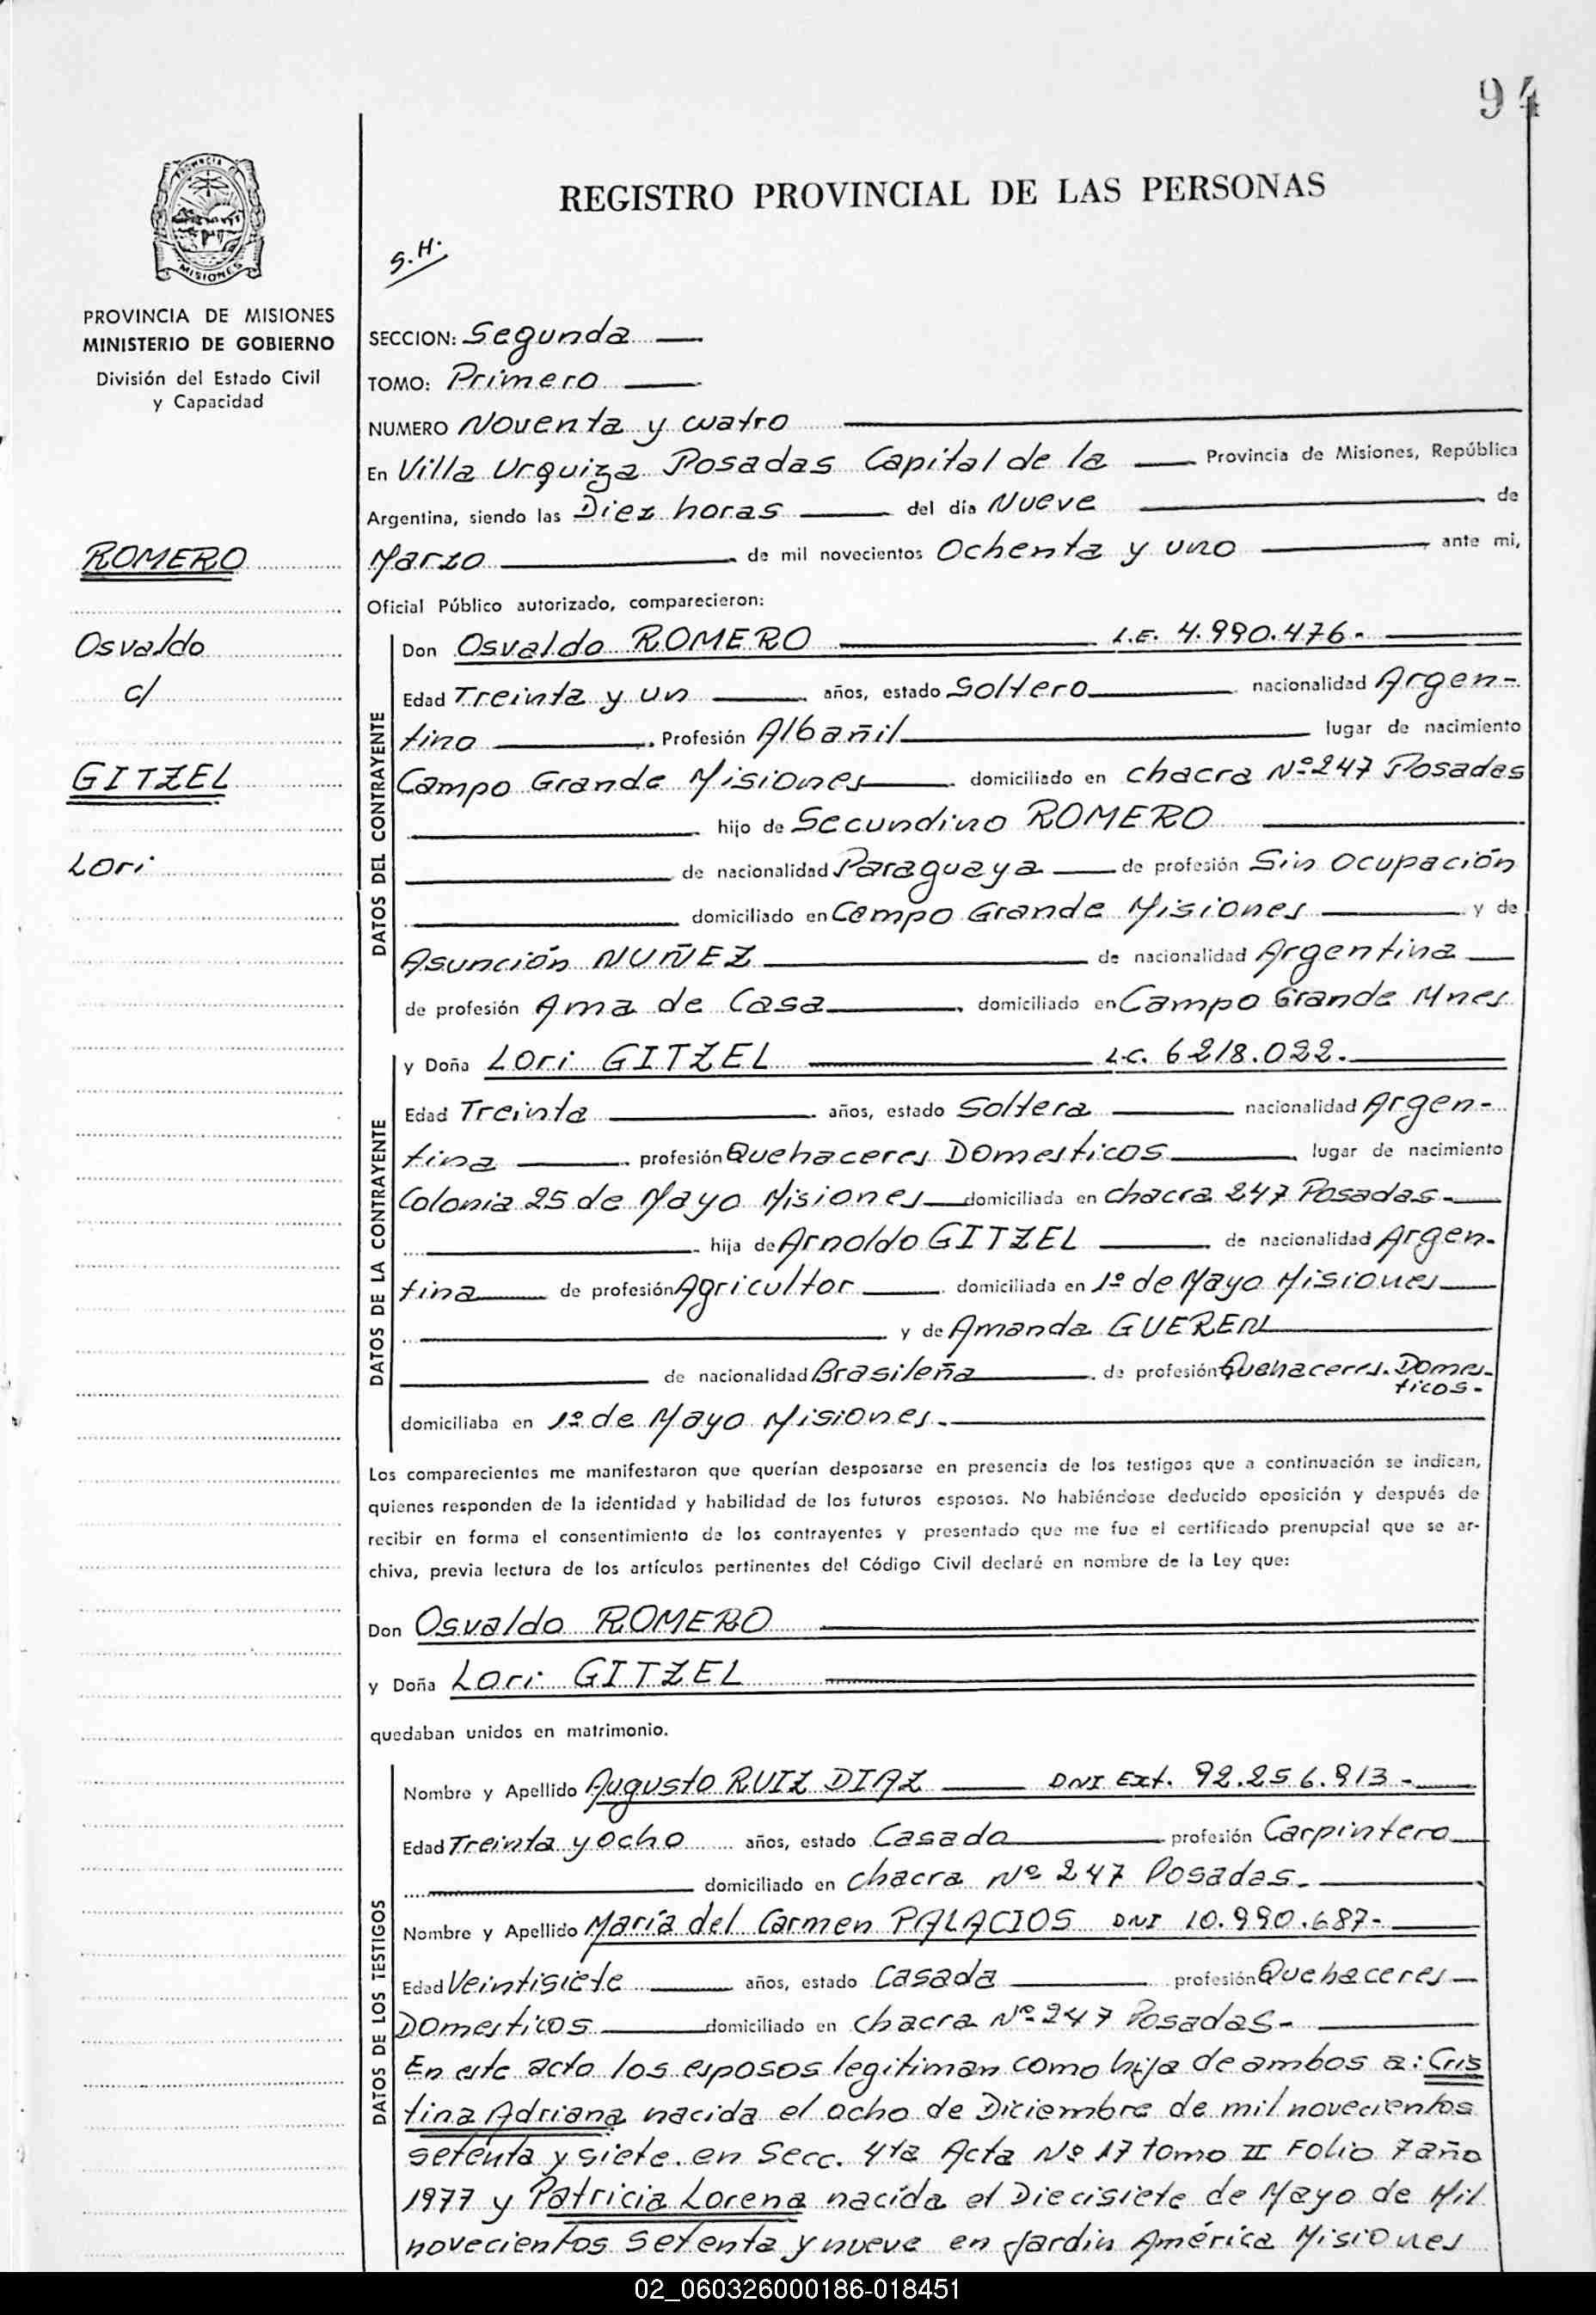 94
PROVINCIA
MISIONES
REGISTRO PROVINCIAL DE LAS PERSONAS
S.H.
PROVINCIA DE MISIONES
MINISTERIO DE GOBIERNO
División del Estado Civil
y Capacidad
ROMERO
Osvaldo
c/
GITZEL
Lori
SECCION: Segunda
TOMO: Primero
NUMERO Noventa y cuatro
En Villa Urquiza Posadas Capital de la Provincia de Misiones, República
Argentina, siendo las Diez horas del día Nueve de
Marzo de mil novecientos Ochenta y uno ante mi,
Oficial Público autorizado, comparecieron:
DATOS DEL CONTRAYENTE
Don Osvaldo ROMERO L.E. 4.990.476.-
Edad Treinta y un años, estado Soltero nacionalidad Argen-
tino Profesión Albañil lugar de nacimiento
Campo Grande Misiones domiciliado en chacra Nº 247 Posadas
hijo de Secundino ROMERO
de nacionalidad Paraguaya de profesión Sin Ocupación
domiciliado en Campo Grande Misiones y de
Asunción NUÑEZ de nacionalidad Argentina
de profesión Ama de Casa domiciliado en Campo Grande Mnes
DATOS DE LA CONTRAYENTE
y Doña Lori GITZEL L.C. 6218.022.
Edad Treinta años, estado Soltera nacionalidad Argen-
tina profesión Quehaceres Domesticos lugar de nacimiento
Colonia 25 de Mayo Misiones domiciliada en chacra 247 Posadas-
hija de Arnoldo GITZEL de nacionalidad Argen-
tina de profesión Agricultor domiciliada en 1º de Mayo Misiones
y de Amanda
de nacionalidad Brasileña de profesión Quehaceres Domes-
ticos-
domiciliaba en 1º de Mayo Misiones.
Los comparecientes me manifestaron que querían desposarse en presencia de los testigos que a continuación se indican,
quienes responden de la identidad y habilidad de los futuros esposos. No habiéndose deducido oposición y después de
recibir en forma el consentimiento de los contrayentes y presentado que me fue el certificado prenupcial que se ar-
chiva, previa lectura de los artículos pertinentes del Código Civil declaré en nombre de la Ley que:
Don Osvaldo ROMERO
y Doña Lori GITZEL
quedaban unidos en matrimonio.
DATOS DE LOS TESTIGOS
Nombre y Apellido Augusto RUIZ DIAZ DNI Ext. 92.256.913-
Edad Treinta y ocho años, estado Casado profesión Carpintero
domiciliado en chacra Nº 247 Posadas.
Nombre y Apellido María del Carmen PALACIOS DNI 10.990.687-
Edad Veintisiete años, estado Casada profesión Quehaceres
Domesticos domiciliado en chacra Nº 247 Posadas-
En este acto los esposos legitiman como hija de ambos a: Cris
tina Adriana nacida el ocho de Diciembre de mil novecientos
setenta y siete. en Secc. 4ta Acta Nº 17 tomo II Folio 7 año
1977 y Patricia Lorena nacida el Diecisiete de Mayo de Mil
novecientos setenta y nueve en Jardin América Misiones
02_060326000186-018451